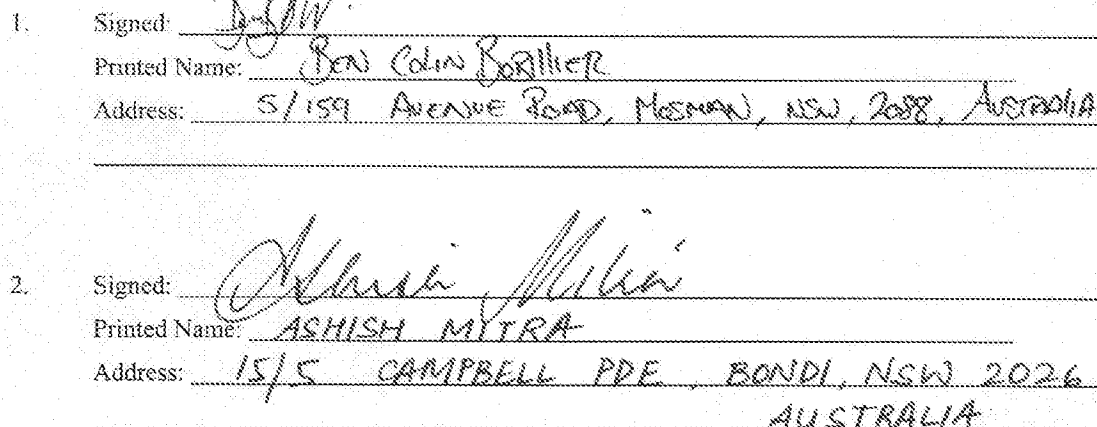 1. Signed:
Printed Name: BEN COLIN BORILLIER
Address: 5/159 AVENUE ROAD, MOSMAN, NSW, 2088, AUSTRALIA
2. Signed: Ashish Mitra
Printed Name: ASHISH MITRA
Address: 15/5 CAMPBELL PDE, BONDI, NSW 2026
AUSTRALIA